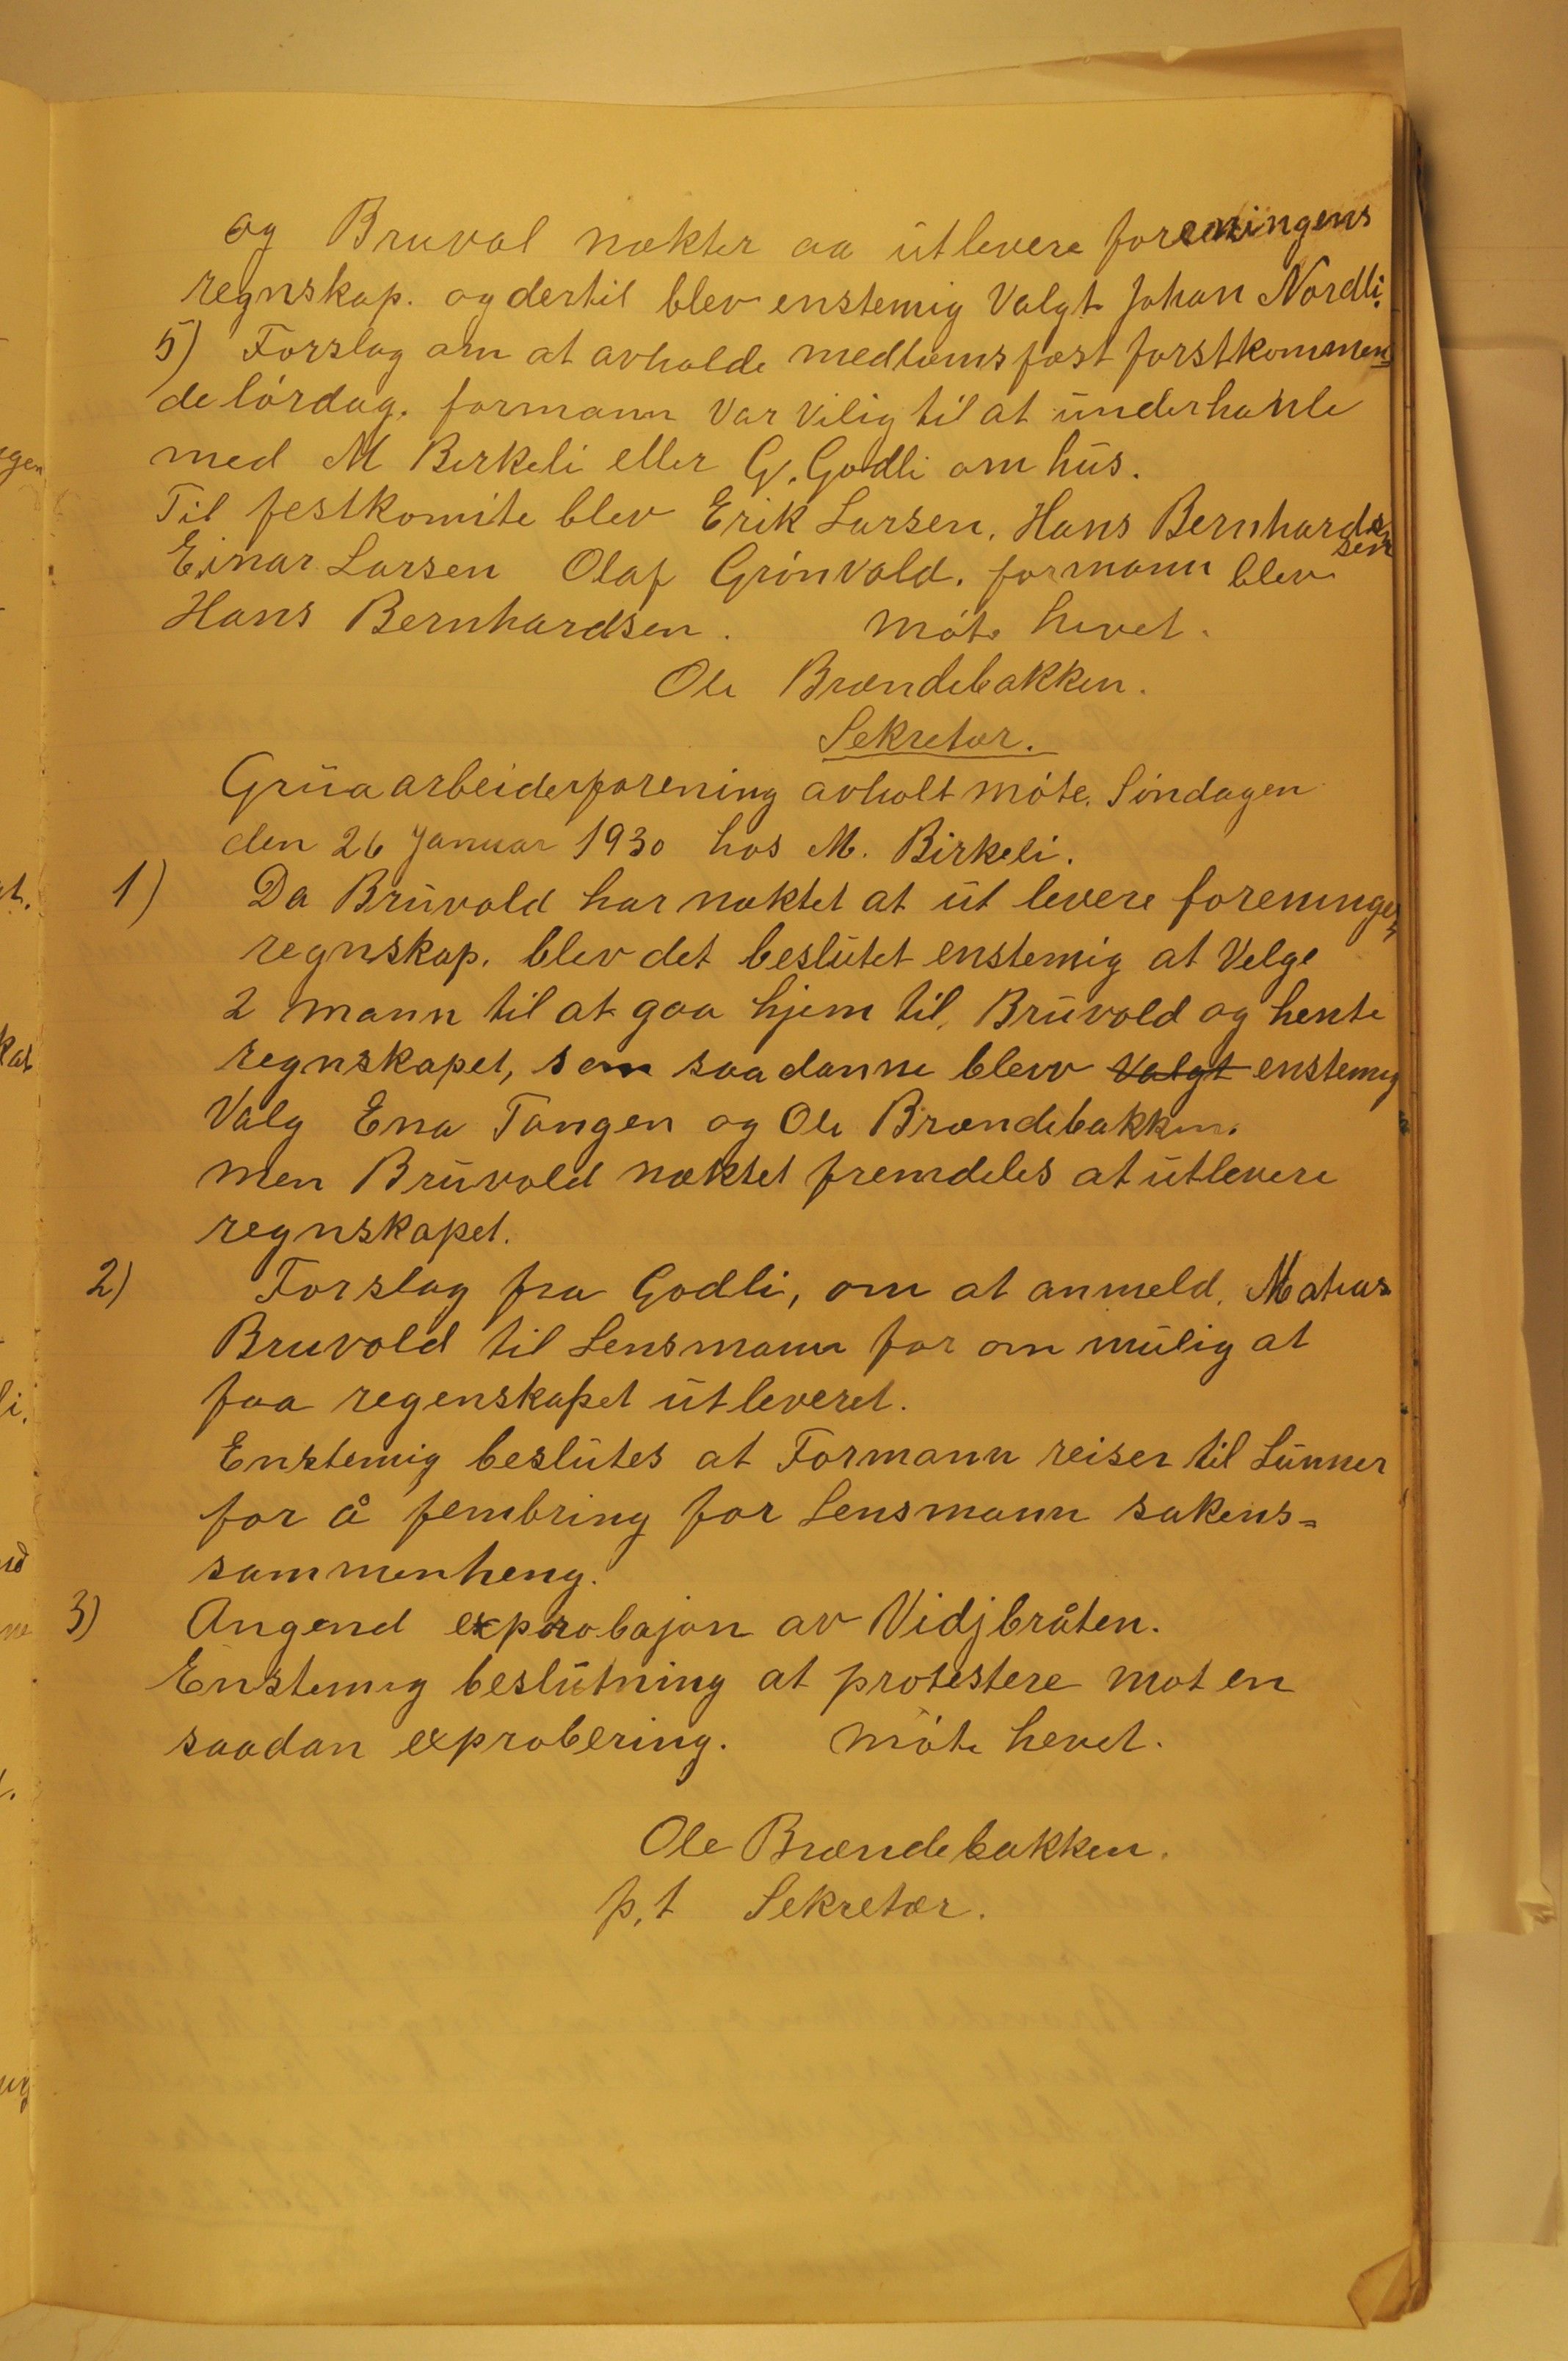 og Bruvol nekter aa utlevere foreningens
regnskap. og dertil blev enstemig Valgt Johan Nordli.
5) Forslag om at avholde medlems fæst forstkommen=
de lórdag. formann var vilig til at underhanle
med M Berkeli eller G. Godli om hus.
Til festkomite blev Erik Larsen, Hans Bernhardsen
Einar Larsen Olaf Grónvold. formann blev
Hans Bernhardsen. Móte hevet.
Ole Brændebakken.
Sekretær.
Grua arbeiderforening avholt móte. Sóndagen
den 26 Januar 1930 hos M. Birkeli.
1) Da Bruvold har nektet at ut levere foreninges
regnskap. blev det beslutet enstemig at Velge
2 mann til at gaa hjem til, Bruvold og hente
regnskapet, som saadanne blev Valgt enstemig
Valg Ena Tangen og Ole Brændebakken.
men Bruvold nektet fremdeles at utlevere
regnskapet.
2) Forslag fra Godli, om at anmeld. Matias
Bruvold til Lensmann for om mulig at
faa regenskapet utleveret.
Enstemig beslutes at Formann reiser til Lunner
for å fembring for Lensmann sakens=
sammenheng.
3) Angend exprobajon av Vidjbråten.
Enstemig beslutning at protestere mot en
saadan exprobering. Móte hevet.
Ole Brændebakken.
p,t Sekretær.